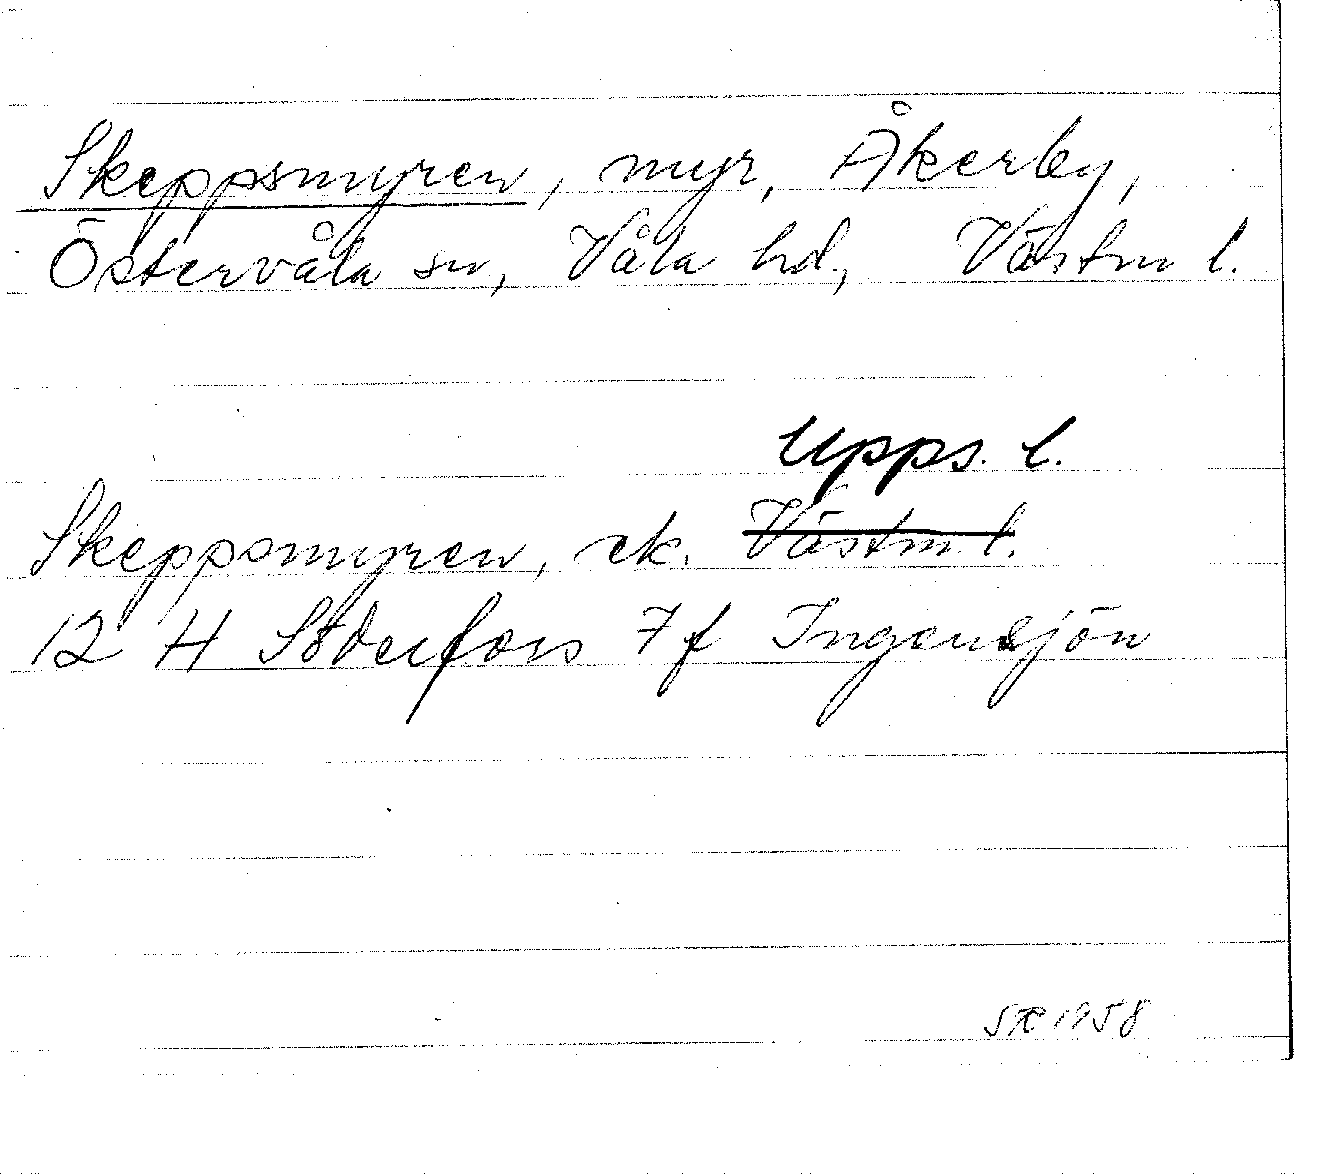 Skeppsmyren, myr, Åkerby,
Östervåla sn, Våla hd, Västm l.
Upps. l.
Skeppsmyren, ek. Västm l.
12 H Söderfors 7f Ingensjön
1958